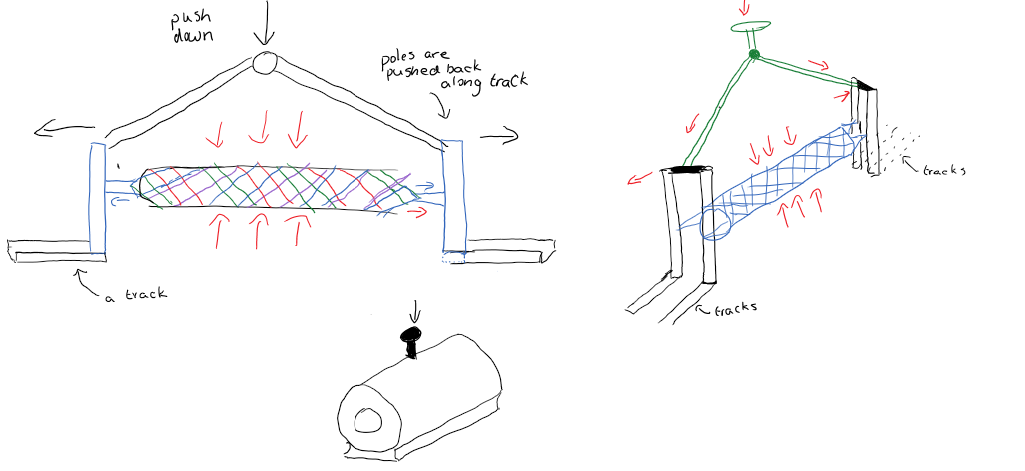 push
down
poles are
pushed back
along track
a track
tracks
tracks